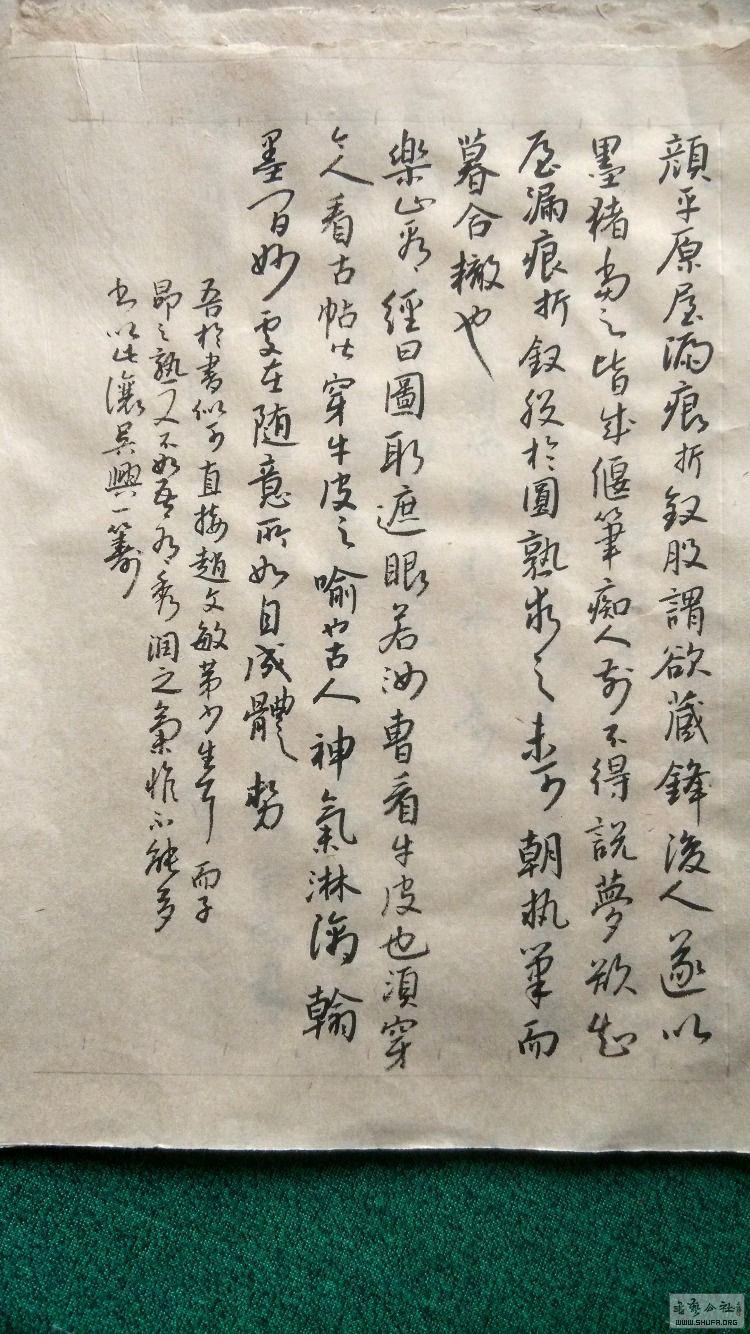 顔平原屋漏痕折釵股謂欲藏鋒後人遂以
墨猪當之皆成偃筆痴人前不得説夢欲知
屋漏痕折釵股於圓熟求之未可朝執筆而
暮合轍也
樂山看經曰圖取遮眼若汝曹看牛皮也須穿
今人看古帖皆穿牛皮之喻也古人神氣淋漓翰
墨間妙處在随意所如自成體勢
吾於書似可直接趙文敏第少生耳而子
昂之熟又不如吾有秀潤之氣惟不能多
書以此讓吳興一籌
WWW.SHUFA.ORG